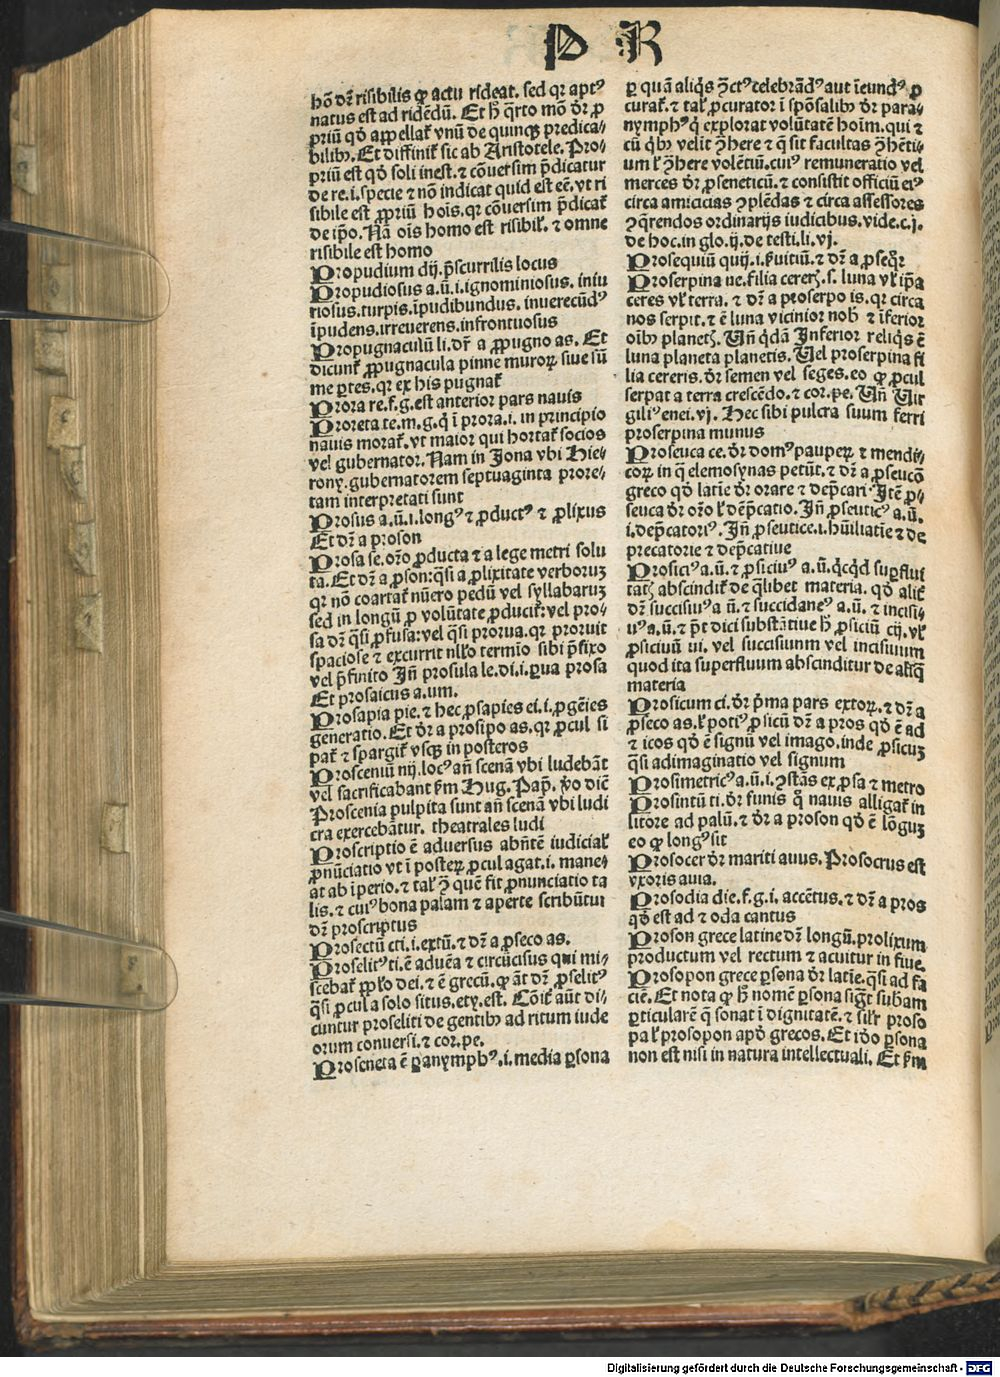 P R
hō dr̄ risibilis ꝙ actu rideat. sed qꝛ aptꝰ
natus est ad ridēdū. Et h̄ q̄rto mō dr̄ ꝓ
priū qd̄ appellat̄ vnū de quinqꝫ predica/
bilibꝰ. Et diffinit̄ sic ab Aristotele. Pro/
priū est qd̄ soli inest. ⁊ cōuersim p̄dicatur
de re .i. specie ⁊ nō indicat quid est eē. vt ri
sibile est ꝓpriū hois. qꝛ cōuersim p̄dicat̄
de ip̄o. Nā oīs homo est risibil̄. ⁊ omne
risibile est homo
Propudium dij. p̄scurrilis locus
Propudiosus a. ū. i. ignominiosus. iniu
riosus. turpis. īpudibundus. inuerecūdꝰ
īpudens. irreuerens. infrontuosus
Propugnaculū li. dr̄ a ꝓpugno as. Et
dicunt̄ ꝓpugnacula pinne muroꝝ siue sū
me ꝑtes. qꝛ ex his pugnat̄
Prora re. f. g. est anterior pars nauis
Proreta te. m. g. q̄ ī prora .i. in principio
nauis morat̄. vt maior qui hortat̄ socios
vel gubernator. Nam in Jona vbi Hie/
rony. gubernatorem septuaginta prore/
tam interpretati sunt
Prosus a. ū. i. longꝰ ⁊ ꝓductꝰ ⁊ ꝓlixus
Et dr̄ a proson
Prosa se. oro ꝓducta ⁊ a lege metri solu
ta. Et dr̄ a ꝓson: qsi a ꝓlixitate verboruꝫ
qꝛ nō coartat̄ nūero pedū vel syllabaruꝫ
sed in longū ꝓ volūtate ꝓducit̄: vel pro/
sa dr̄ qsi ꝓfusa: vel qsi prorua. qꝛ proruit
spaciose ⁊ excurrit nłło termio sibi p̄fixo
vel p̄finito Jn̄ prosula le. di. i. ꝑua prosa
Et prosaicus a. um.
Prosapia pie. ⁊ hec ꝓsapies ei. i. ꝓgēies
generatio. Et dr̄ a prosipo as. qꝛ ꝓcul si
pat̄ ⁊ spargit̄ vsqꝫ in posteros
Prosceniū nij. locꝰ an̄ scenā vbi ludebāt
vel sacrificabant sm̄ Hug. Pap̄. vo dic̄
Proscenia pulpita sunt an̄ scenā vbi ludi
cra exercebātur. theatrales ludi
Proscriptio ē adversus abn̄tē iudicial̄
ꝓnūciatio vt ī posteꝝ ꝓcul agat .i. mane/
at ab īperio. ⁊ tal̄ ꝯ quē fit ꝓnunciatio ta
lis. ⁊ cuiꝰ bona palam ⁊ aperte scribūtur
dr̄ proscriptus
Prosectū cti. i. extū. ⁊ dr̄ a ꝓseco as.
Proselitꝰ ti. ē aduēa ⁊ circūcisus qui mi/
scebat̄ ꝓꝑło dei. ⁊ ē grecū. ꝙ āt dr̄ ꝓselitꝰ
qsi ꝓcul a solo situs. ety. est. Cōit̄ aūt di/
cuntur proseliti de gentibꝰ ad ritum iude
orum conuersi. ⁊ cor. pe.
Proseneta ē ꝑanymphꝰ. i. media ꝑsona
ꝑ quā aliqs ꝯctꝰ celebrādꝰ aut ieundꝰ ꝓ
curat̄. ⁊ tal̄ ꝓcurator ī spōsalibꝰ dr̄ para/
nymphꝰ q̄ explorat volūtatē hoim. qui ⁊
cū qbꝰ velit ꝯhere ⁊ q̄ sit facultas ꝯhēti/
um ł ꝯhere volētiū. cuiꝰ remuneratio vel
merces dr̄ ꝓseneticū. ⁊ consistit officiū eiꝰ
circa amicicias ꝯplēdas ⁊ circa assessores
ꝯq̄rendos ordinarijs iudicibus. vide. c. j.
de hoc. in glo. ij. de testi. li. vj.
Prosequiū quij. i. s̄uitiū. ⁊ dr̄ a ꝓseqr̄
Proserpina ne. filia cerer̄. s. luna vł ip̄a
ceres vł terra. ⁊ dr̄ a proserpo is. qꝛ circa
nos serpit. ⁊ ē luna vicinior nob̄ ⁊ īferior
oibꝰ planet̄. Un̄ qdā Inferior reliqs ē
luna planeta planetis. Vel proserpina fi
lia cereris. dr̄ semen vel seges. eo ꝙ ꝓcul
serpat a terra crescēdo. ⁊ cor. pe. Un̄ Vir
gilꝰ enei. vj. Hec sibi pulcra suum ferri
proserpina munus
Proseuca ce. dr̄ domꝰ pauperꝝ ⁊ mendi/
coꝝ in q̄ elemosynas petūt. ⁊ dr̄ a ꝓseucō
greco qd̄ latie dr̄ orare ⁊ dep̄cari. Itē ꝓ/
seuca dr̄ oro ł dep̄catio. Jn̄ ꝓseuticꝰ a. ū.
i. dep̄catoriꝰ. Jn̄ ꝓseutice. i. hūiliatie ⁊ de
precatorie ⁊ dep̄catiue
Prosicꝰ a. ū. ⁊ ꝓsiciuꝰ a. ū. qcqd suꝑflui
tat̄ abscindit̄ de qlibet materia. qd̄ alit̄
dr̄ succisiuꝰ a. ū. ⁊ succidaneꝰ a. ū. ⁊ incisi/
uꝰ a. ū. ⁊ p̄t dici substātiue h̄ ꝓsiciū cij. vł
ꝓsiciuū ui. vel succisiuum vel incisiuum
quod ita superfluum abscinditur de aliq̄
materia
Prosicum ci. dr̄ p̄ma pars extoꝝ. ⁊ dr̄ a
ꝓseco as. ł potiꝰ ꝓsicū dr̄ a pros qd̄ ē ad
⁊ icos qd̄ ē signū vel imago. inde ꝓsicuꝫ
qsi adimaginatio vel signum
Prosimetricꝰ a. ū. i. ꝯstās ex ꝓsa ⁊ metro
Prosintū ti. dr̄ funis q̄ nauis alligat̄ in
litore ad palū. ⁊ dr̄ a proson qd̄ ē lōguꝫ
eo ꝙ longꝰ sit
Prosocer dr̄ mariti auus. Prosocrus est
vxoris auia.
Prosodia die. f. g. i. accētus. ⁊ dr̄ a pros
qd̄ est ad ⁊ oda cantus
Proson grece latine dr̄ longū. prolixum
productum vel rectum ⁊ acuitur in fine.
Prosopon grece ꝑsona dr̄ latie. qsi ad fa
ciē. Et nota ꝙ h̄ nomē ꝑsona sigt̄ subam
ꝑticularē q̄ sonat ī dignitatē. ⁊ silr̄ proso
pa ł prosopon apd̄ grecos. Et ido ꝑsona
non est nisi in natura intellectuali. Et sm̄
Digitalisierung gefördert durch die Deutsche Forschungsgemeinschaft - DFG